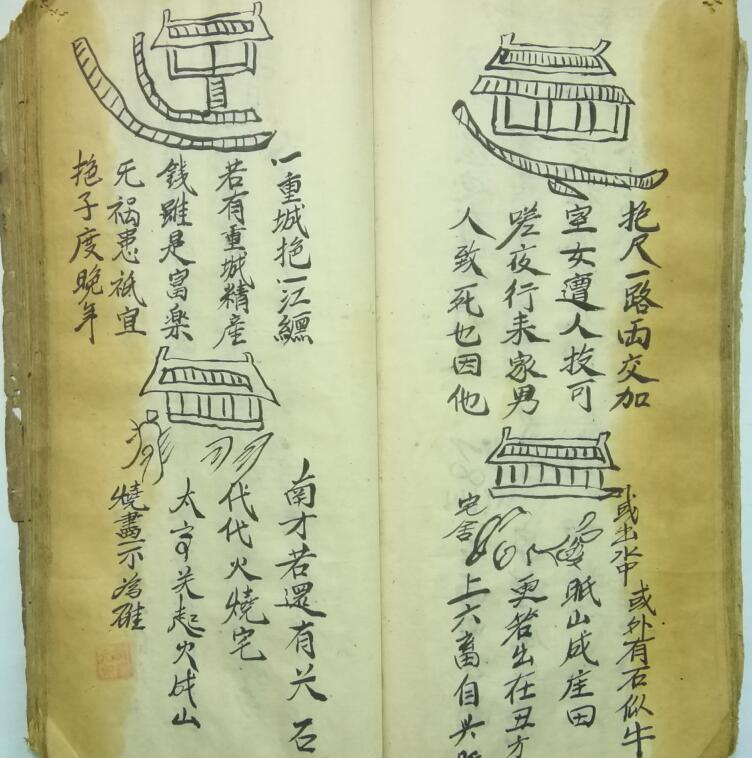 抱尺一路両交加
室女遭人技可
嗟夜行来家男
人致死也因他
或出水中 或外有石似牛
眠山成庄田
更若出在丑方
宅舍
上六畜自
一重城抱一江纏
若有重城精産
錢雖是富楽
旡祸患祇宜
抱子度晚年
南才若還有尖石
代代火燒宅
太 起火成山
燒盡不為